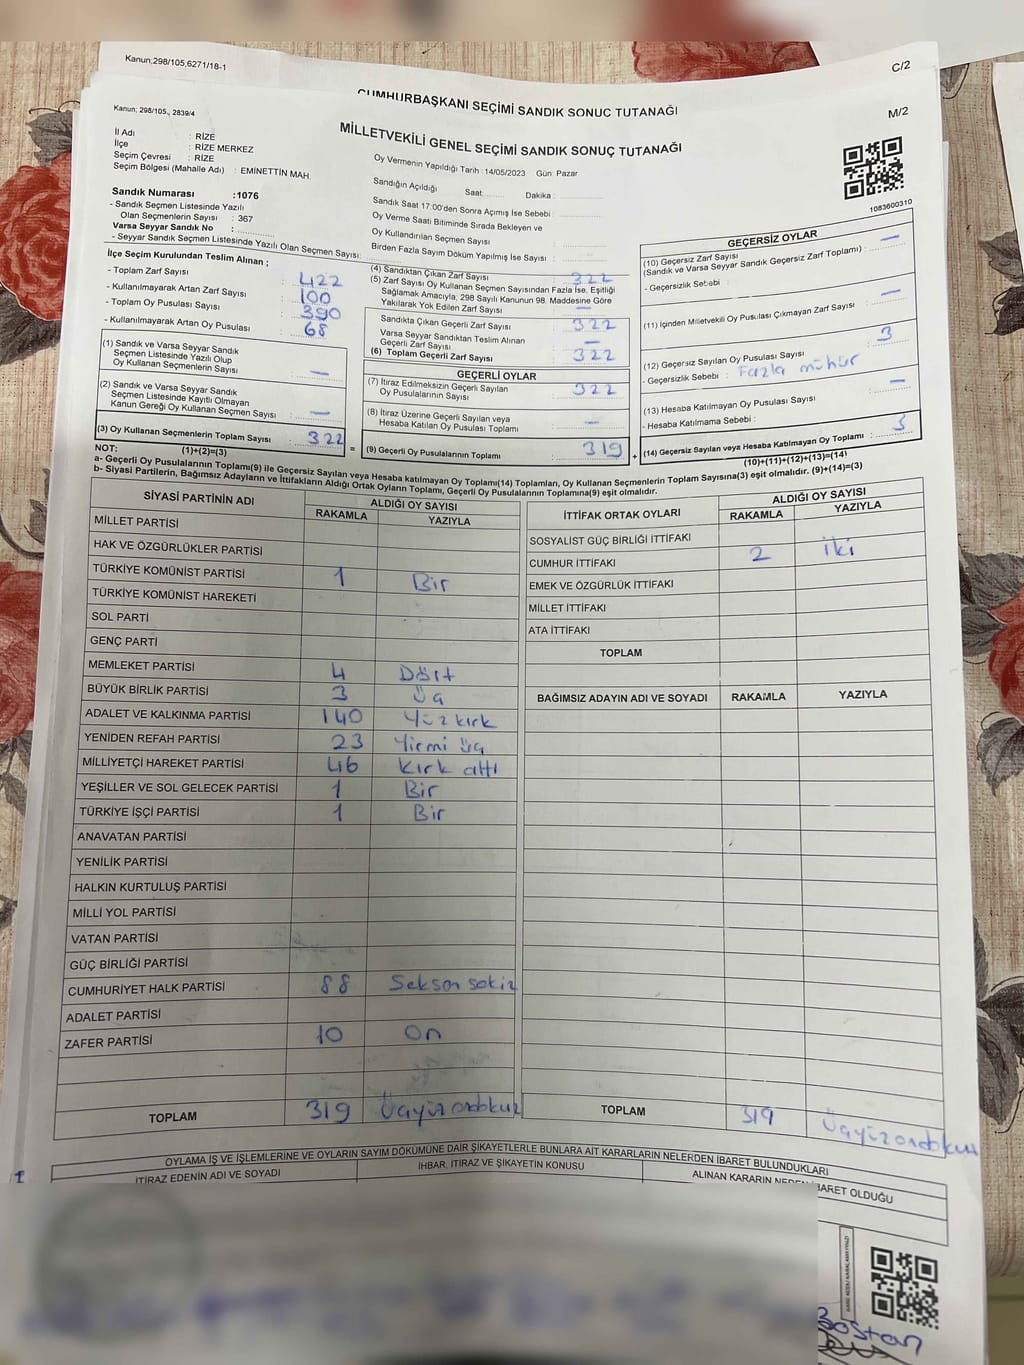 Kanun;298/105,6271/18-1
C/2
CUMHURBAŞKANI SEÇİMİ SANDIK SONUÇ TUTANAĞI
Kanun; 298/105., 2839/4
M/2
MİLLETVEKİLİ GENEL SEÇİMİ SANDIK SONUÇ TUTANAĞI
İl Adı : RİZE
İlçe : RİZE MERKEZ
Seçim Çevresi : RİZE
Seçim Bölgesi (Mahalle Adı) : EMİNETTİN MAH.
Sandık Numarası :1076
- Sandık Seçmen Listesinde Yazılı
Olan Seçmenlerin Sayısı : 367
Varsa Seyyar Sandık No :
- Seyyar Sandık Seçmen Listesinde Yazılı Olan Seçmen Sayısı:
Oy Vermenin Yapıldığı Tarih : 14/05/2023 Gün: Pazar
Sandığın Açıldığı Saat: Dakika :
Sandık Saat 17:00'den Sonra Açımış İse Sebebi :
Oy Verme Saati Bitiminde Sırada Bekleyen ve
Oy Kullandırılan Seçmen Sayısı :
Birden Fazla Sayım Döküm Yapılmış İse Sayısı :
1083600310
İlçe Seçim Kurulundan Teslim Alınan ;
- Toplam Zarf Sayısı : 422
- Kullanılmayarak Artan Zarf Sayısı : 100
- Toplam Oy Pusulası Sayısı : 390
- Kullanılmayarak Artan Oy Pusulası : 68
(1) Sandık ve Varsa Seyyar Sandık
Seçmen Listesinde Yazılı Olup
Oy Kullanan Seçmenlerin Sayısı : —
(2) Sandık ve Varsa Seyyar Sandık
Seçmen Listesinde Kayıtlı Olmayan
Kanun Gereği Oy Kullanan Seçmen Sayısı : —
(3) Oy Kullanan Seçmenlerin Toplam Sayısı : 322
(1)+(2)=(3)
(4) Sandıktan Çıkan Zarf Sayısı : 322
(5) Zarf Sayısı Oy Kullanan Seçmen Sayısından Fazla İse, Eşitliği
Sağlamak Amacıyla; 298 Sayılı Kanunun 98. Maddesine Göre
Yakılarak Yok Edilen Zarf Sayısı : —
Sandıkta Çıkan Geçerli Zarf Sayısı : 322
Varsa Seyyar Sandıktan Teslim Alınan
Geçerli Zarf Sayısı : —
(6) Toplam Geçerli Zarf Sayısı : 322
GEÇERLİ OYLAR
(7) İtiraz Edilmeksizin Geçerli Sayılan
Oy Pusulalarının Sayısı : 322
(8) İtiraz Üzerine Geçerli Sayılan veya
Hesaba Katılan Oy Pusulası Toplamı : —
= (9) Geçerli Oy Pusulalarının Toplamı : 319 +
GEÇERSİZ OYLAR
(10) Geçersiz Zarf Sayısı
(Sandık ve Varsa Seyyar Sandık Geçersiz Zarf Toplamı) : —
- Geçersizlik Sebebi :
(11) İçinden Milletvekili Oy Pusulası Çıkmayan Zarf Sayısı : —
(12) Geçersiz Sayılan Oy Pusulası Sayısı : 3
- Geçersizlik Sebebi : Fazla mühür
(13) Hesaba Katılmayan Oy Pusulası Sayısı : —
- Hesaba Katılmama Sebebi :
(14) Geçersiz Sayılan veya Hesaba Katılmayan Oy Toplamı : 3
(10)+(11)+(12)+(13)=(14)
NOT:
a- Geçerli Oy Pusulalarının Toplamı(9) ile Geçersiz Sayılan veya Hesaba katılmayan Oy Toplamı(14) Toplamları, Oy Kullanan Seçmenlerin Toplam Sayısına(3) eşit olmalıdır. (9)+(14)=(3)
b- Siyasi Partilerin, Bağımsız Adayların ve İttifakların Aldığı Ortak Oyların Toplamı, Geçerli Oy Pusulalarının Toplamına(9) eşit olmalıdır.
SİYASİ PARTİNİN ADI ALDIĞI OY SAYISI
RAKAMLA YAZIYLA
MİLLET PARTİSİ
HAK VE ÖZGÜRLÜKLER PARTİSİ
TÜRKİYE KOMÜNİST PARTİSİ 1 Bir
TÜRKİYE KOMÜNİST HAREKETİ
SOL PARTİ
GENÇ PARTİ
MEMLEKET PARTİSİ 4 Dört
BÜYÜK BİRLİK PARTİSİ 3 Üç
ADALET VE KALKINMA PARTİSİ 140 Yüz kırk
YENİDEN REFAH PARTİSİ 23 Yirmi üç
MİLLİYETÇİ HAREKET PARTİSİ 46 kırk altı
YEŞİLLER VE SOL GELECEK PARTİSİ 1 Bir
TÜRKİYE İŞÇİ PARTİSİ 1 Bir
ANAVATAN PARTİSİ
YENİLİK PARTİSİ
HALKIN KURTULUŞ PARTİSİ
MİLLİ YOL PARTİSİ
VATAN PARTİSİ
GÜÇ BİRLİĞİ PARTİSİ
CUMHURİYET HALK PARTİSİ 88 Seksen sekiz
ADALET PARTİSİ
ZAFER PARTİSİ 10 On
TOPLAM 319 Üçyüzondokuz
İTTİFAK ORTAK OYLARI ALDIĞI OY SAYISI
RAKAMLA YAZIYLA
SOSYALİST GÜÇ BİRLİĞİ İTTİFAKI
CUMHUR İTTİFAKI 2 iki
EMEK VE ÖZGÜRLÜK İTTİFAKI
MİLLET İTTİFAKI
ATA İTTİFAKI
TOPLAM
BAĞIMSIZ ADAYIN ADI VE SOYADI RAKAMLA YAZIYLA
TOPLAM 319 Üçyüzondokuz
OYLAMA İŞ VE İŞLEMLERİNE VE OYLARIN SAYIM DÖKÜMÜNE DAİR ŞİKAYETLERLE BUNLARA AİT KARARLARIN NELERDEN İBARET BULUNDUKLARI
İTİRAZ EDENİN ADI VE SOYADI İHBAR, İTİRAZ VE ŞİKAYETİN KONUSU ALINAN KARARIN NEDEN İBARET OLDUĞU
Bostan